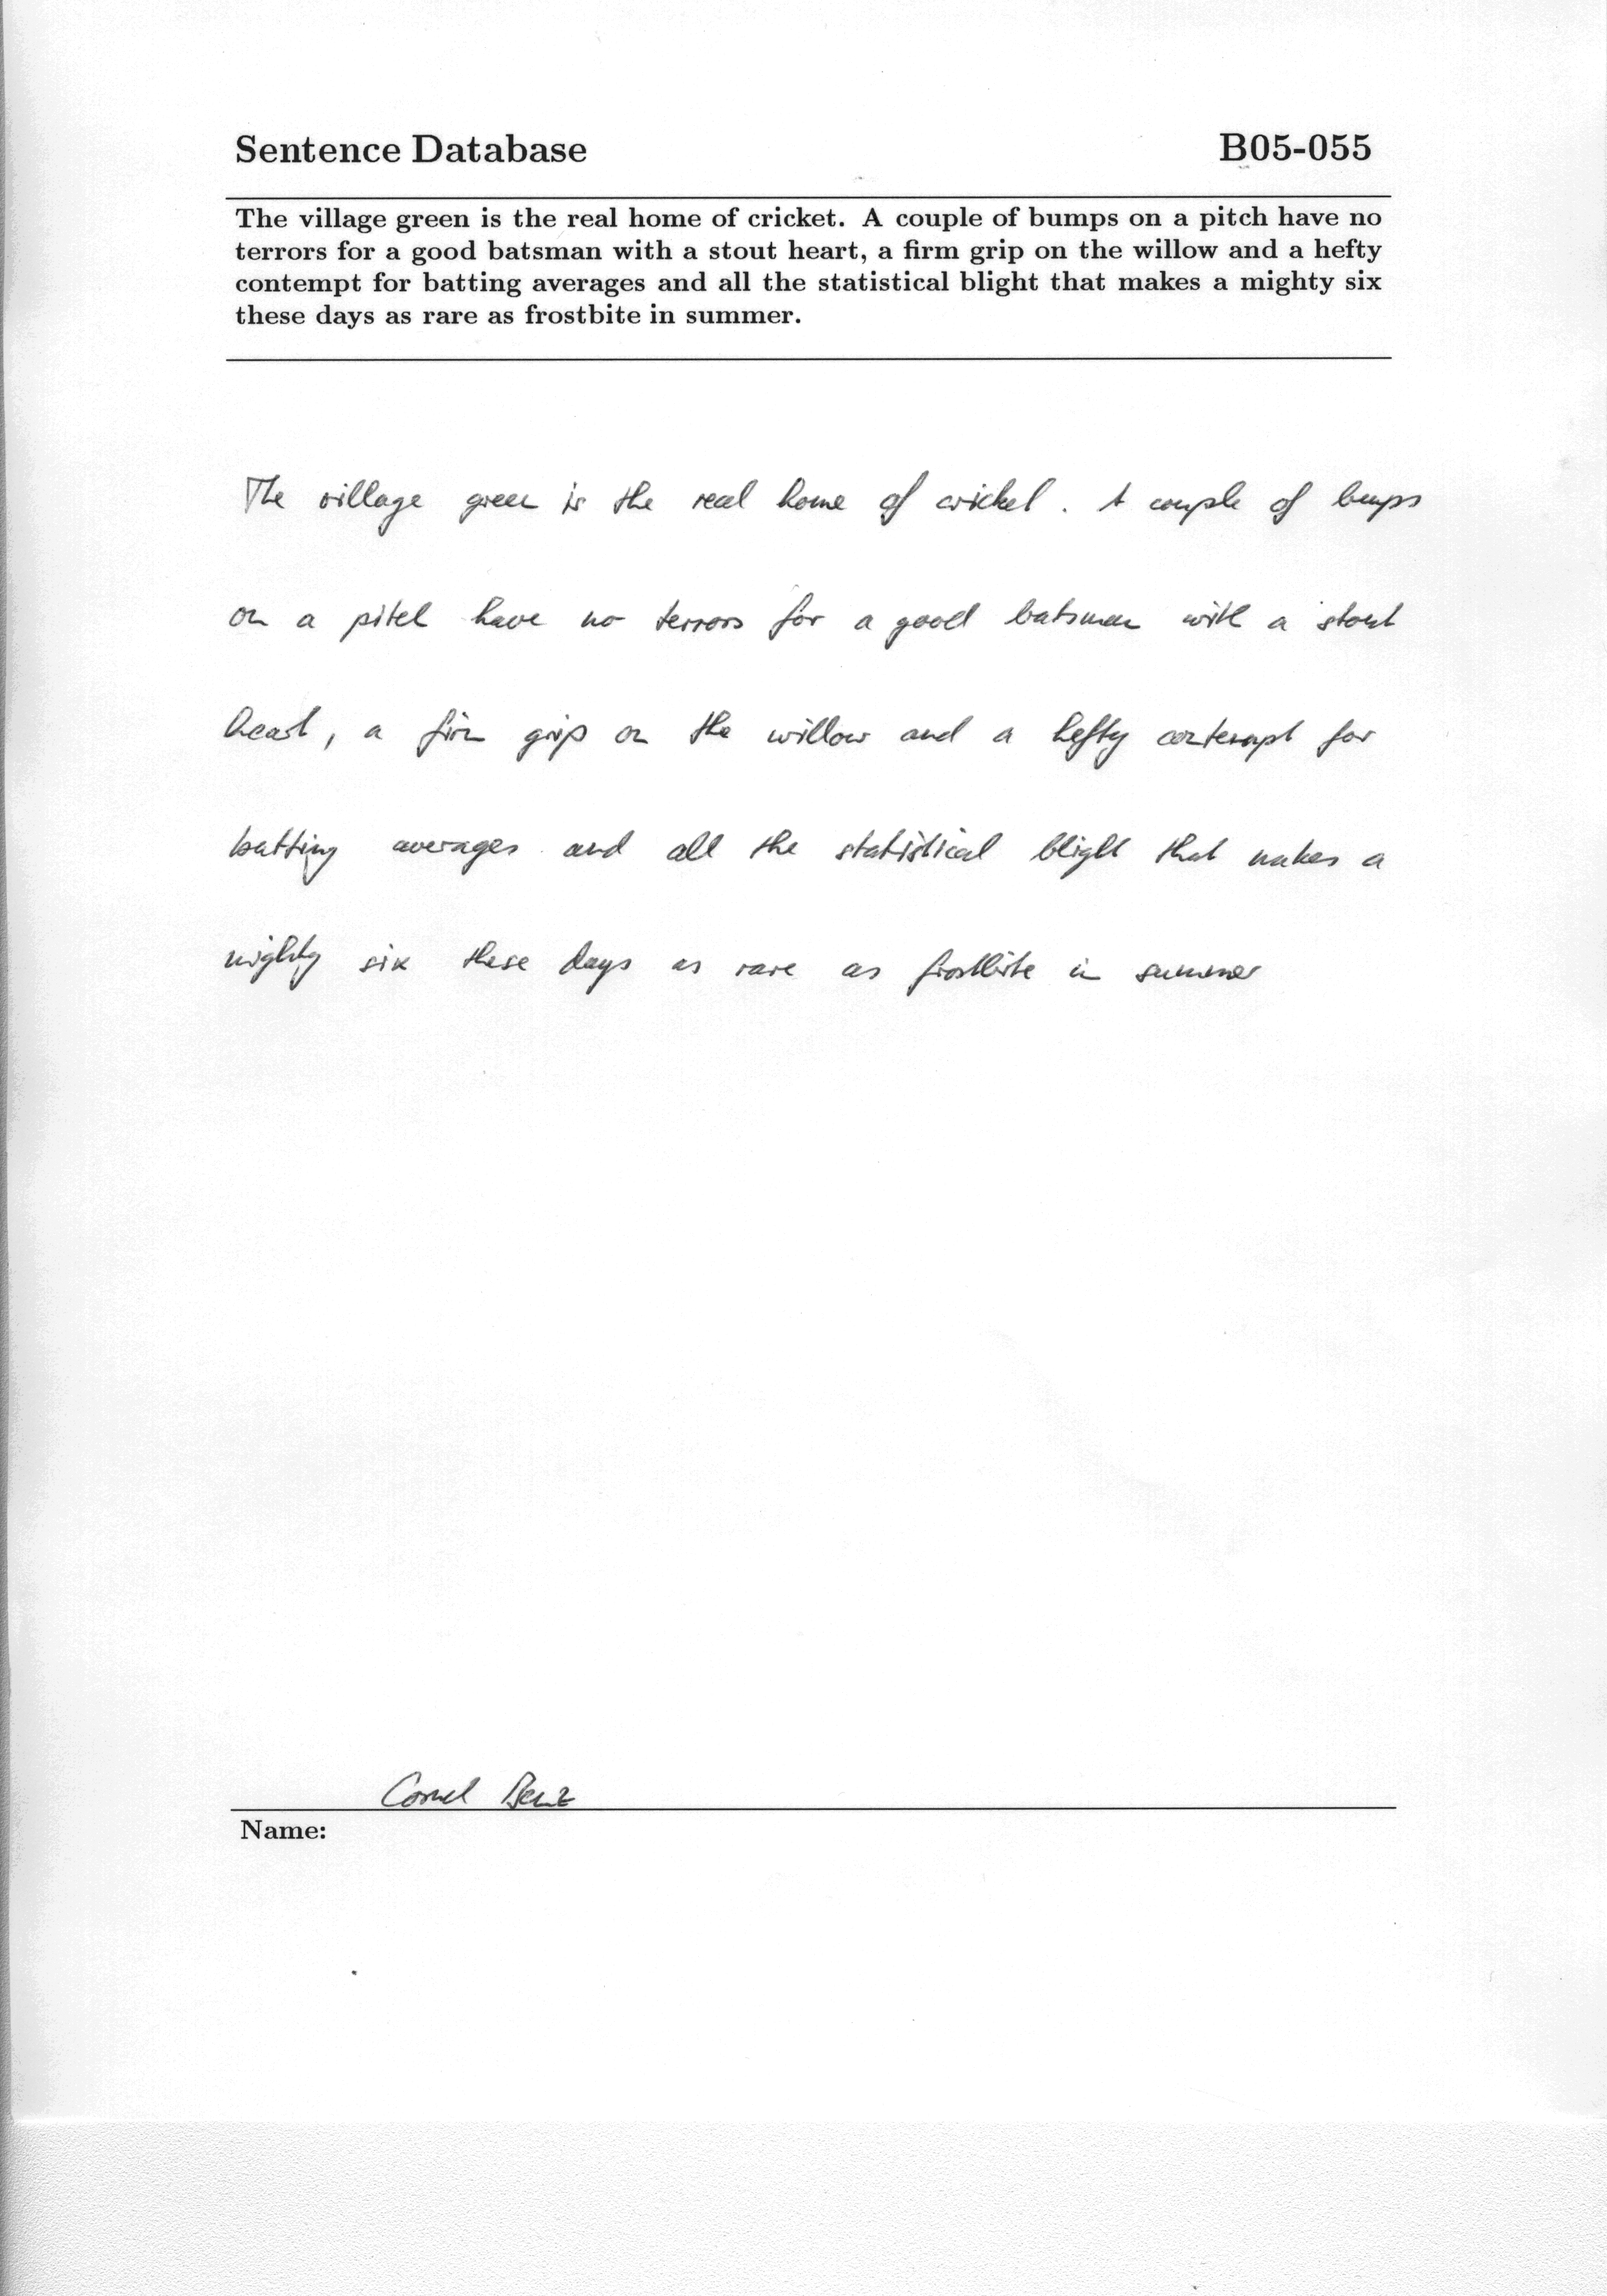 Sentence Database B05-055
The village green is the real home of cricket. A couple of bumps on a pitch have no
terrors for a good batsman with a stout heart, a firm grip on the willow and a hefty
contempt for batting averages and all the statistical blight that makes a mighty six
these days as rare as frostbite in summer.
The village green is the real home of cricket. A couple of bumps
on a pitch have no terrors for a good batsman with a stout
heart, a firm grip on the willow and a hefty contempt for
batting averages and all the statistical blight that makes a
mighty six these days as rare as frostbite in summer
Name: